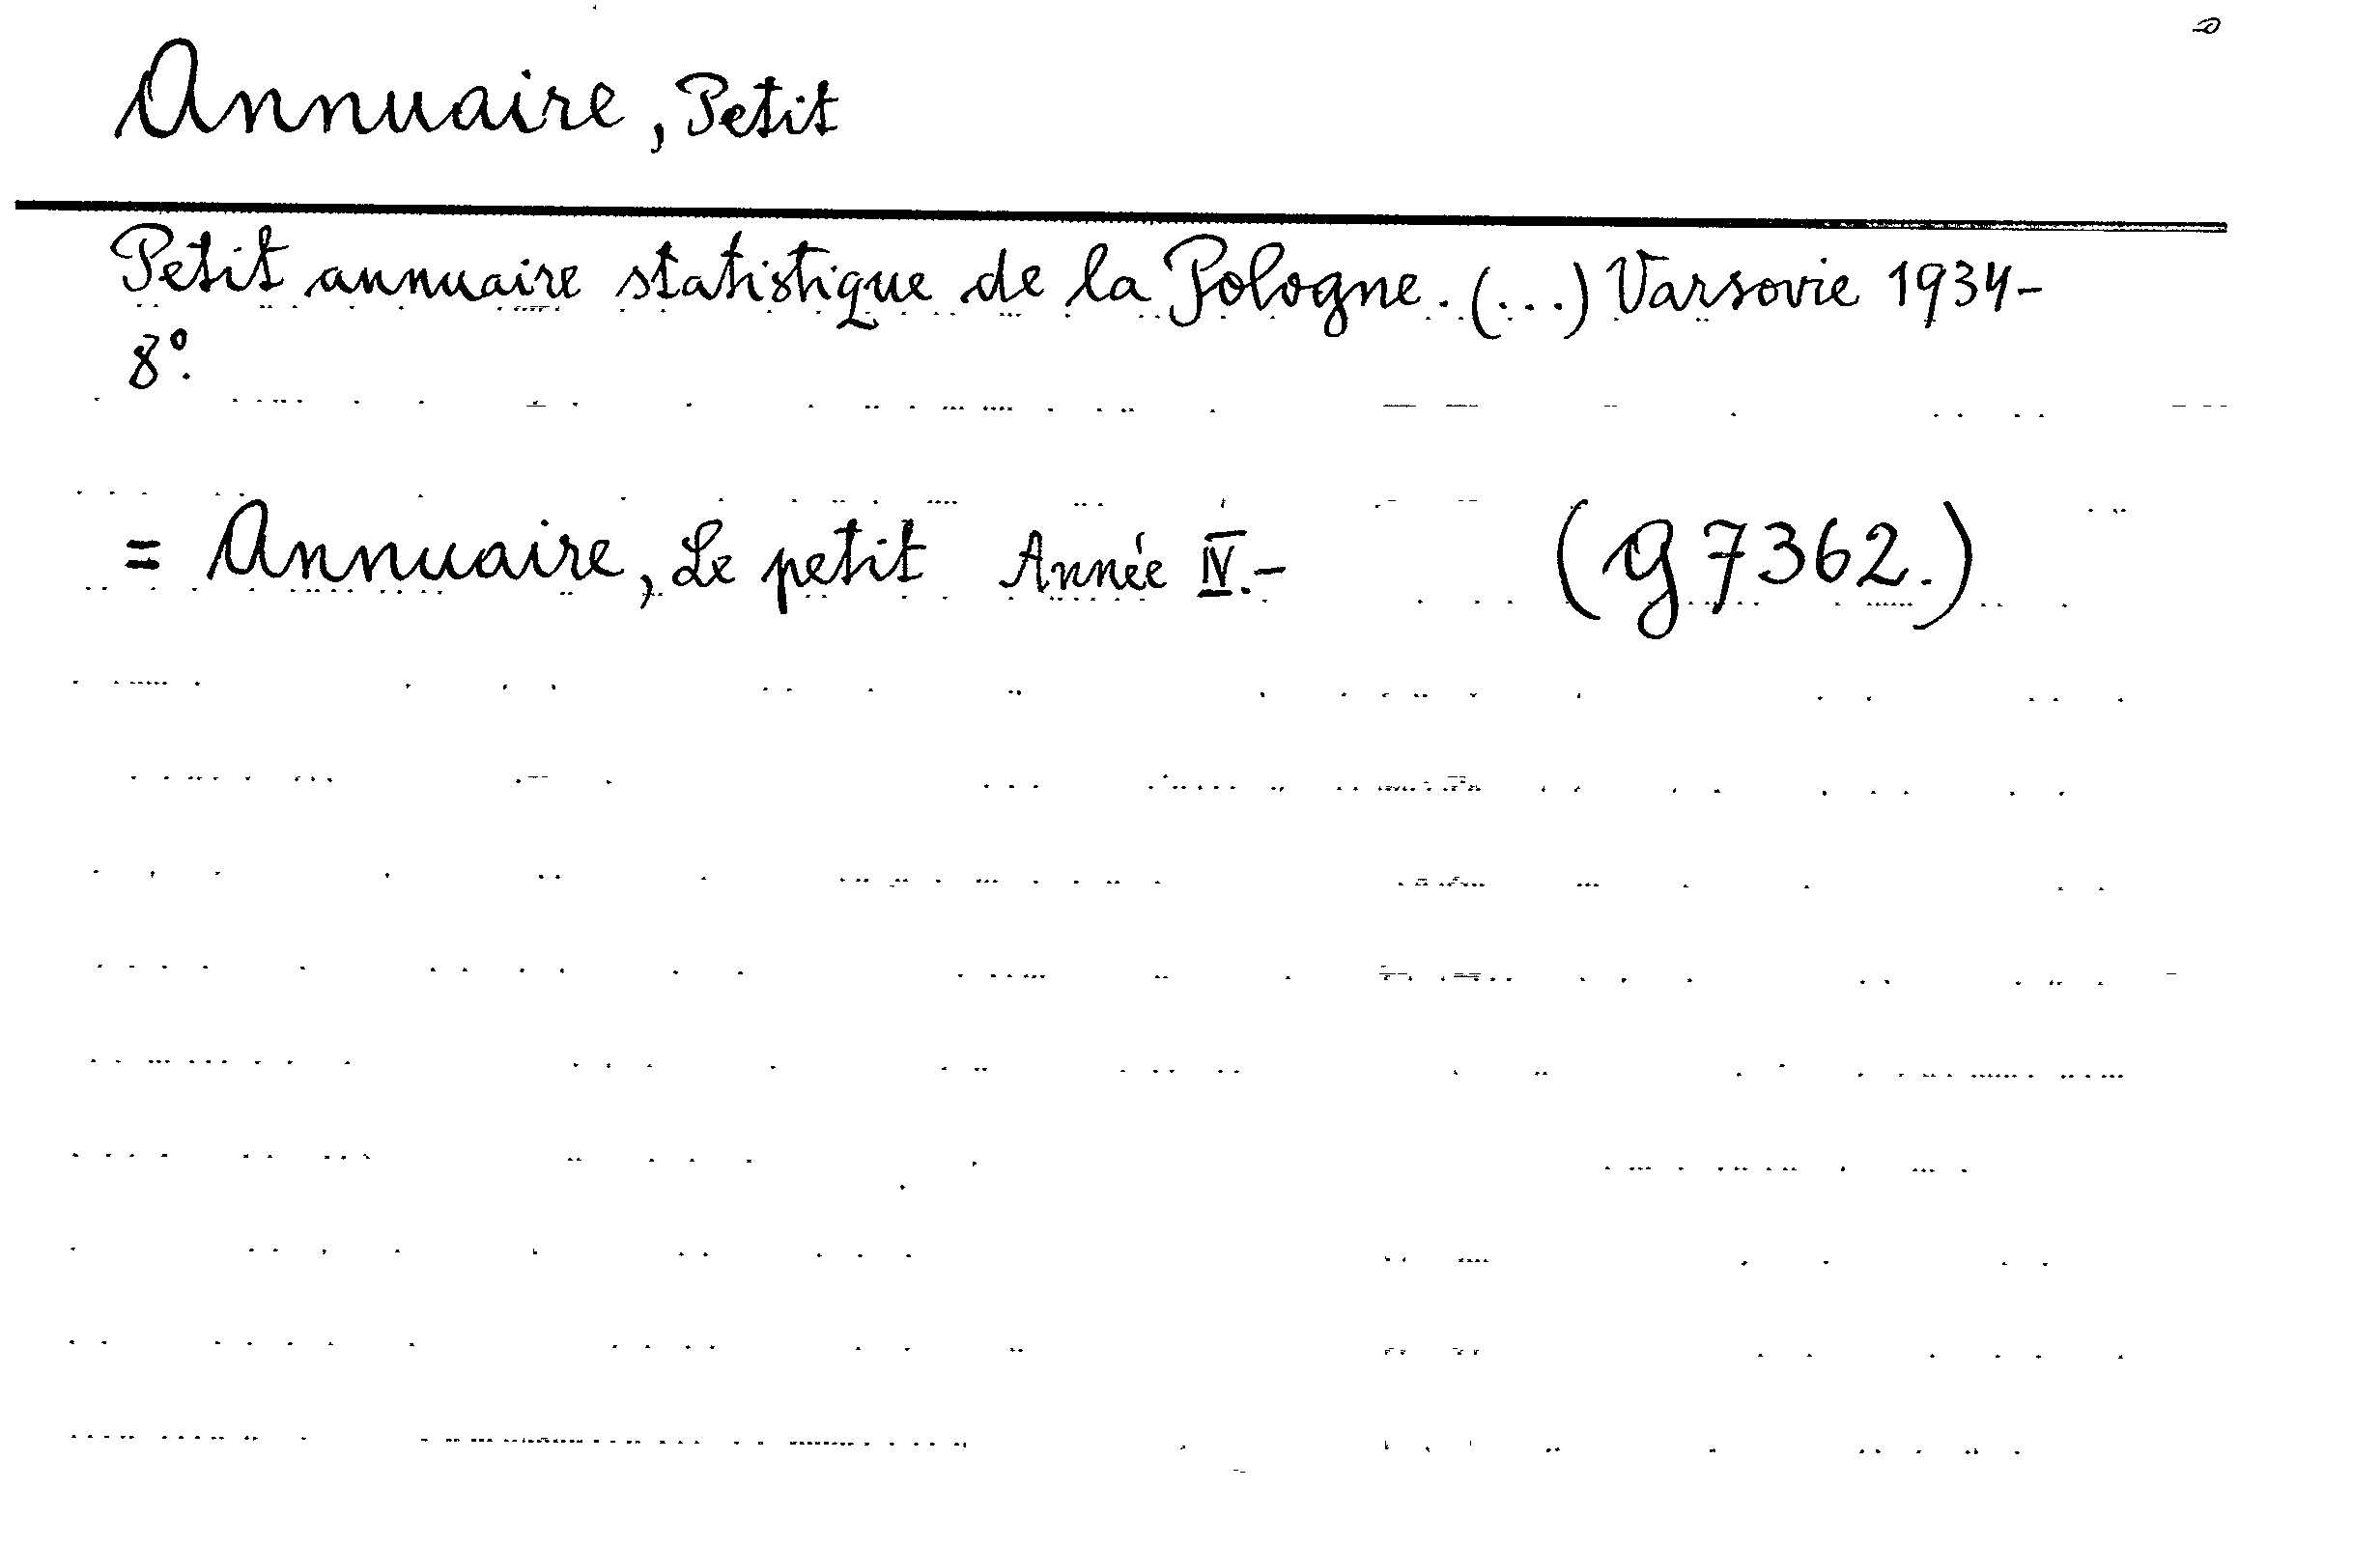 Annuaire, Petit
Petit annuaire statistique de la Pologne. (...) Varsovie 1934-
8º.
= Annuaire, Le petit Année IV.- (G 7362.)